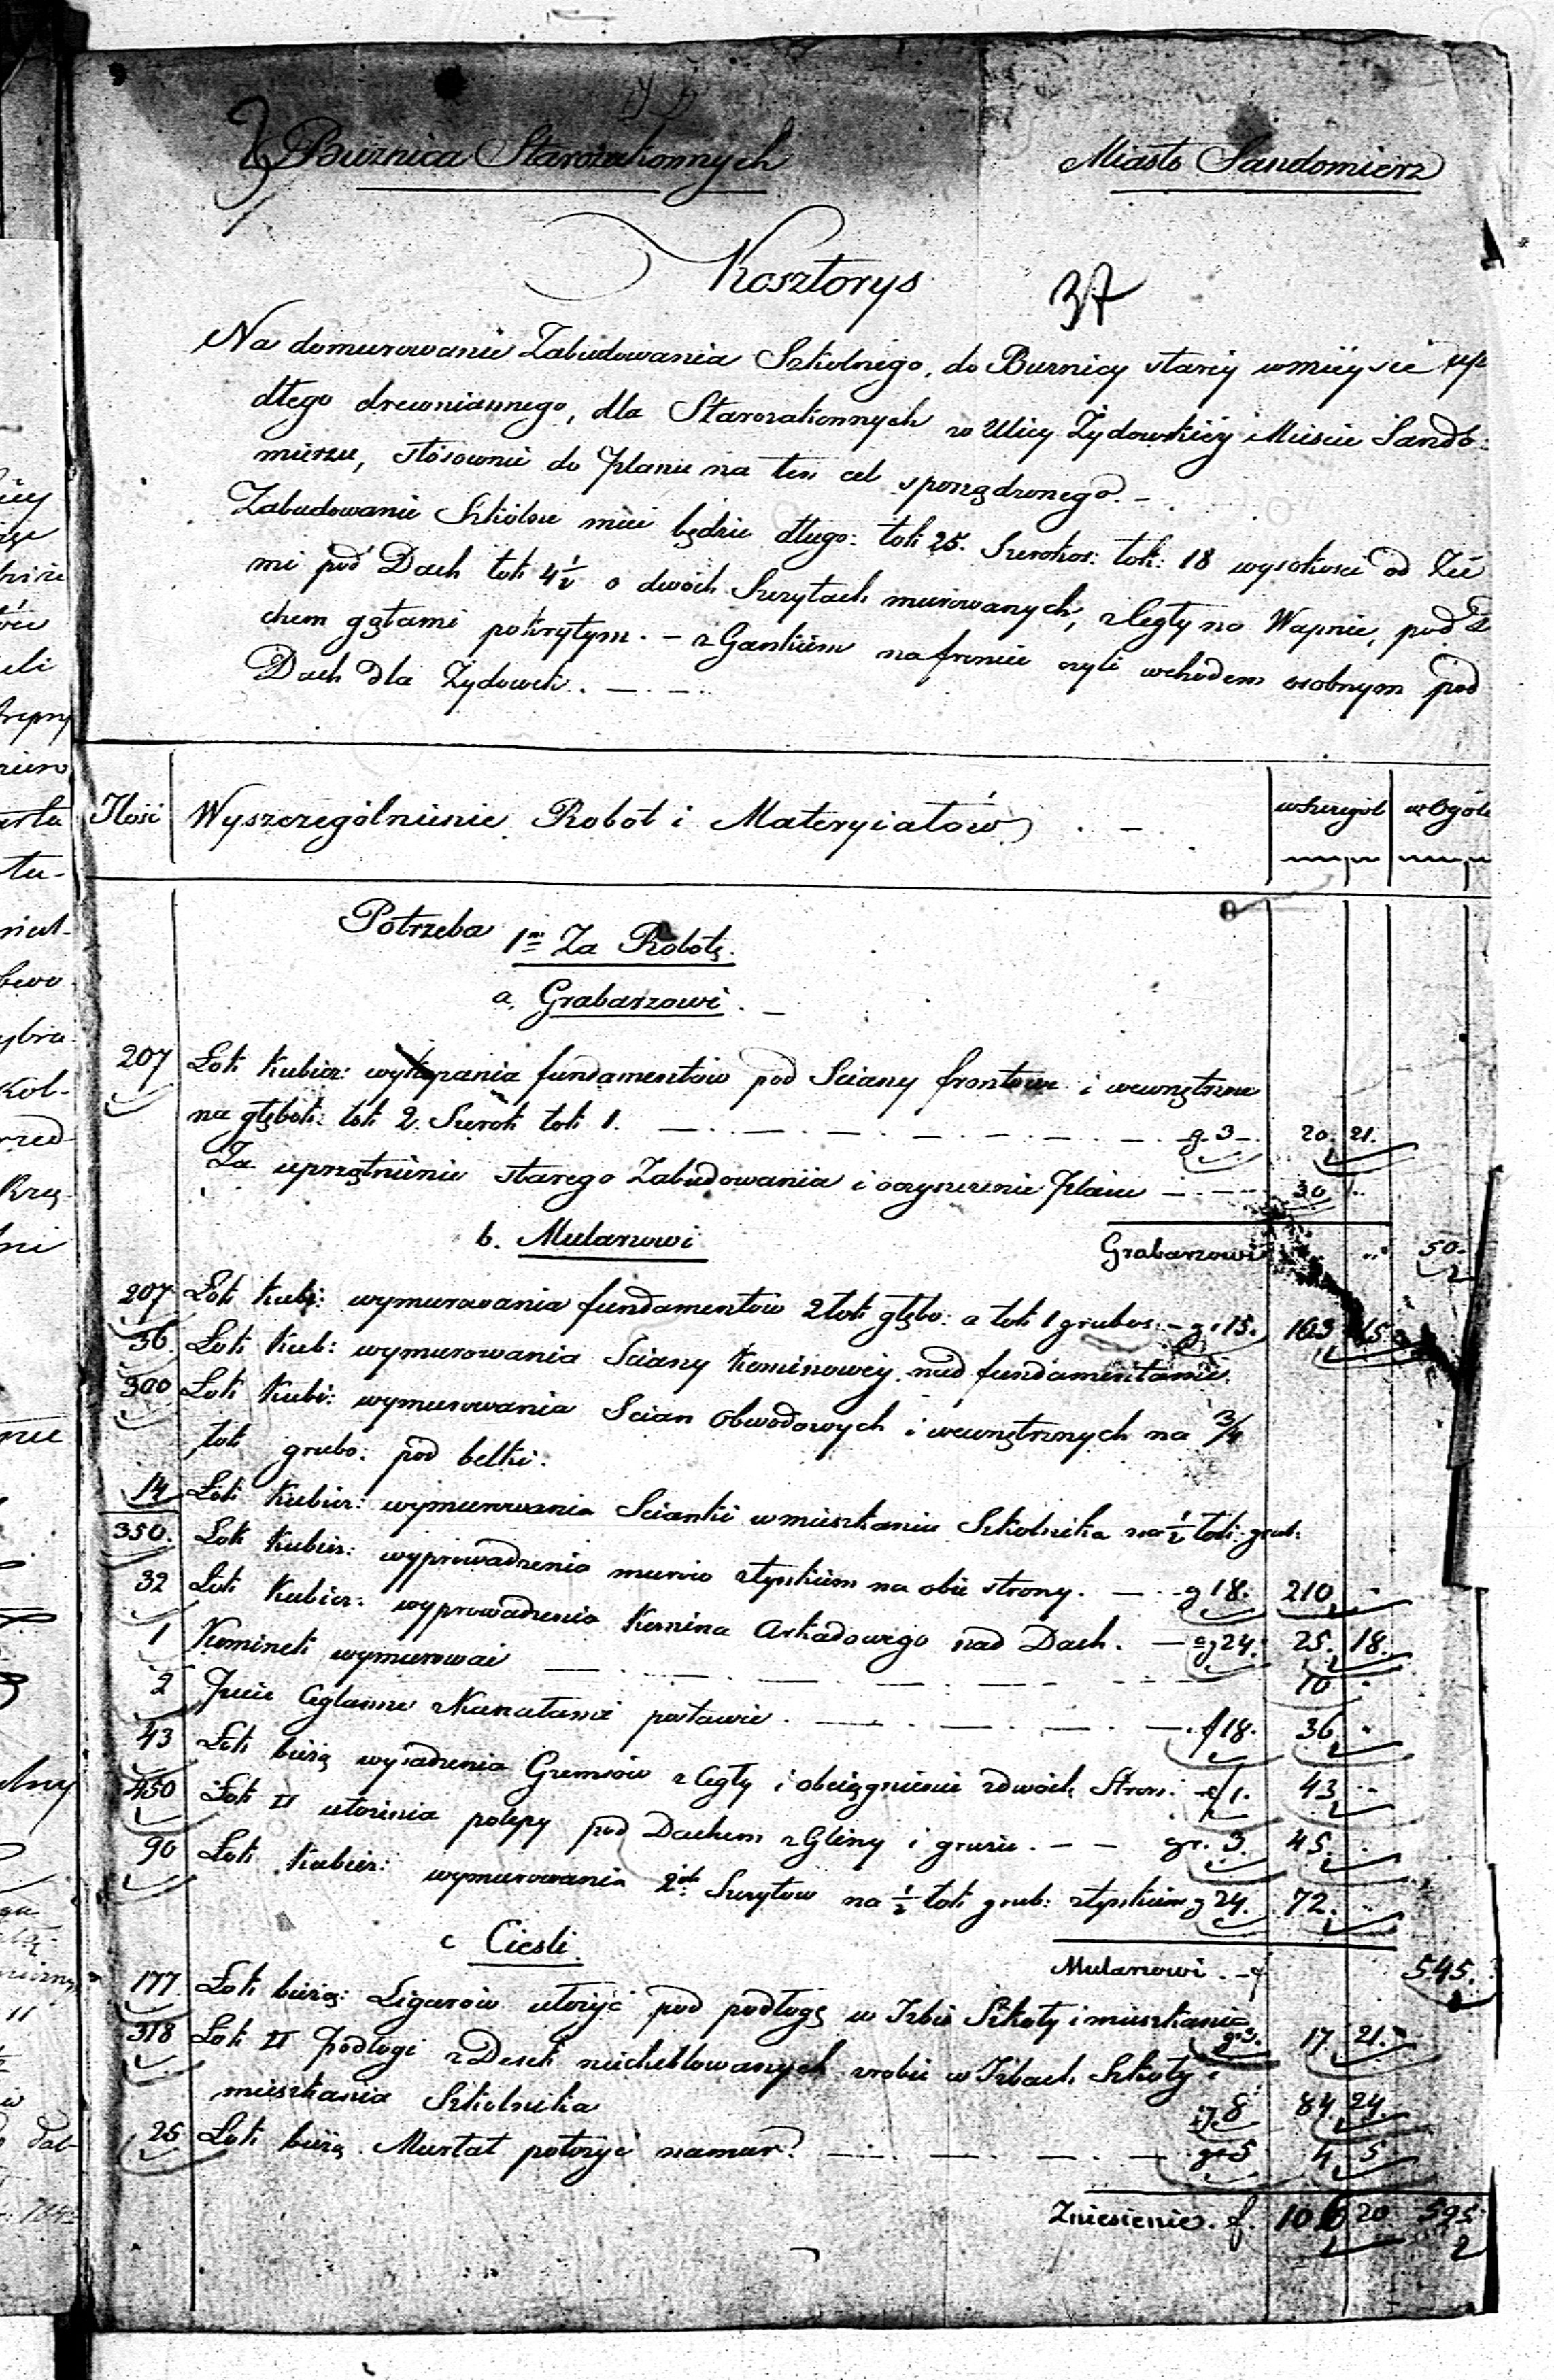 Bużnica Starozakonnych
Miasto Sandomierz
Kosztorys
37
Na domurowanie Zabudowania Szkolnego, do Buznicy starey w mieysce up
dłego drewnianego, dla Starozakonnych w Ulicy Żydowskiey i Mieście Sando:
mierzu, stósownie do planu na ten cel sporządzonego. –
Zabudowanie Szkólne mieć będzie długo: łok 25. Szerokos: łok: 18 wysokości od Zie
mi pod Dach łok 4½ o dwóch Szczytach murowanych, z Cegły na Wapnie, pod Da
chem gątami pokrytym. – z Gankiem na froncie czyli wchodem osobnym pod
Dach dla Żydowek. – . –
Ilość Wyszczególnienie Robot i Materyiałów . – w Szczegól w Ogóle
Potrzeba
1mo Za Robotę.
a, Grabarzowi. –
207 Łok Kubicz: wykopania fundamentów pod Sciany frontowe i wewnętrzne
na głębok: łok 2. Szerok łok 1. – . – . – g. 3 –. 20. 21.
Za uprzątnienie starego Zabudowania i oczyszczenie Placu – . – – 30 "
b. Mularzowi
Grabarzowi " 50.
207 Łok Kubi: wymurowania fundamentów 2 łok głębo: a łok 1 grubos: – g. 15. 103 15
36. Łok Kub: wymurowania Sciany Kominowey nad fundamentami
300 Łok Kubi: wymurowania Scian Obwodowych i wewnętrznych na ¾
łok grubo: pod belki:
14 Łok Kubicz: wymurowania Scianki w mieszkaniu Szkolnika na ½ łok: grub:
350. Łok Kubicz: wyprowadzenia murów z tynkiem na obie strony. – . – g 18. 210 "
32 Łok Kubicz: wyprowadzenia Komina Arkadowego nad Dach. – g 24. 25. 18.
1 Kominek wymurować – . – . – . – 10 "
2 Piece Ceglanne z Kanałami postawić. – . – . – . f 18. 36 "
43 Łok bieżą wysadzenia Gzemsów z Cegły i obciągnienie z dwóch Stron: f 1. 43 "
450 Łok □ ułożenia polepy pod Dachem z Gliny i gruzu. – – gr. 3. 45. "
90 Łok Kubicz: wymurowania 2ch Szczytow na ½ łok grub: z tynkiem g 24. 72. "
c Cieśli.
Mularzowi. – f 545.
177 Łok bieżą: Ligarów ułożyć pod podłogę w Izbie Szkoły i mieszkania
g 3. 17 21.
318 Łok □ Podłogi z Desek nieheblowanych zrobić w Izbach Szkoły i
mieszkania Szkolnika g 8 84 24.
25 Łok bieżą. Murłat położyć na mur. – . – . – gr 5 4 5
Zniesienie. f. 106 20 595
2